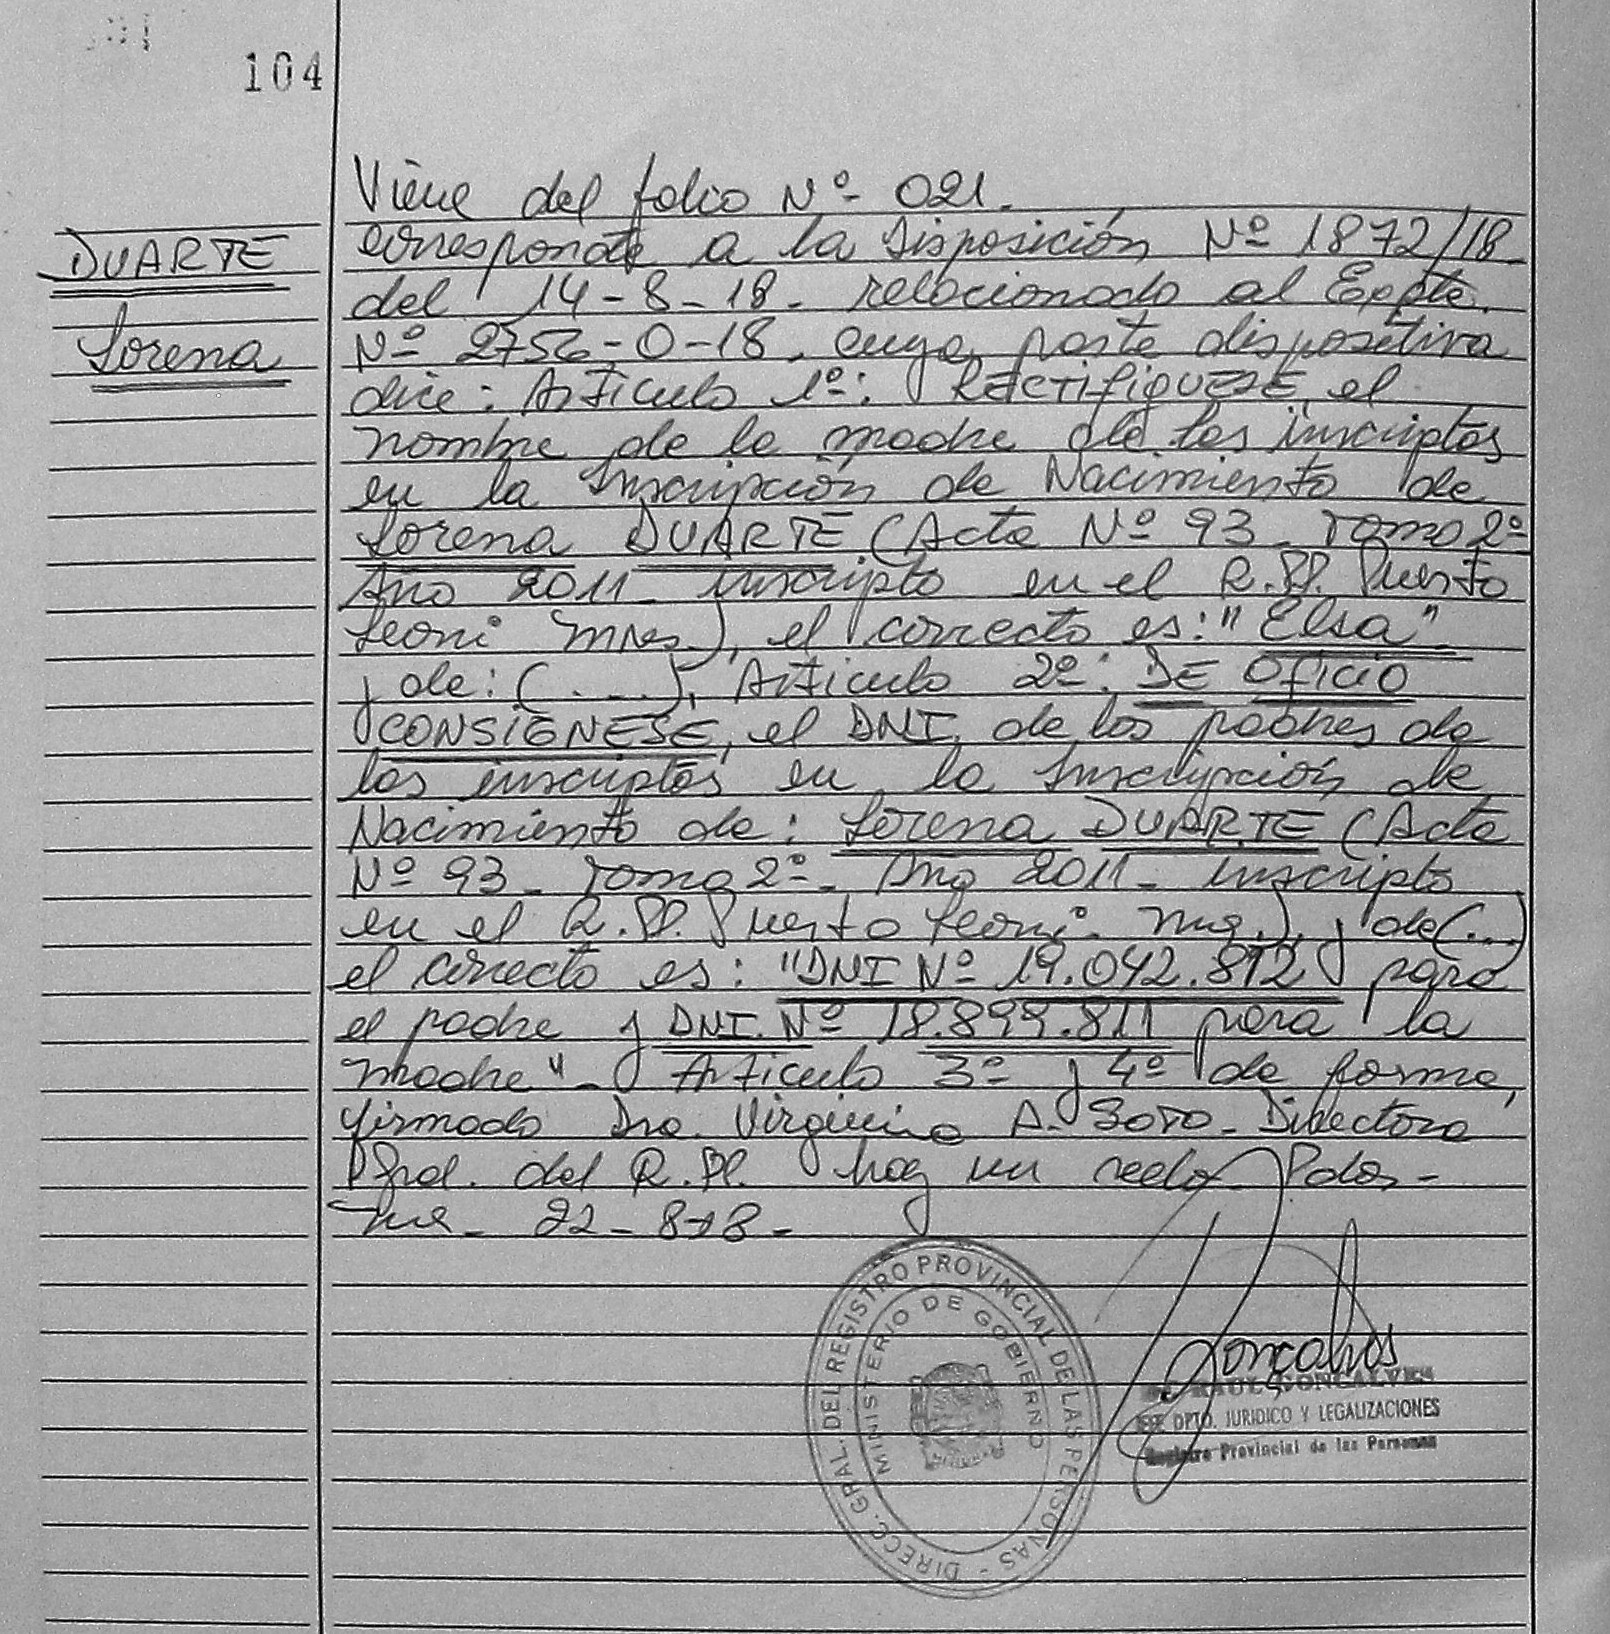 104
Viene del folio Nº 021.
DUARTE
Lorena
corresponde a la Disposición Nº 1872/18
del 14-8-18. relacionado al Expte.
Nº 2756-O-18, cuya parte dispositiva
dice: Articulo 1º: RECTIFIQUESE, el
nombre de la madre de los inscriptos
en la Inscripción de Nacimiento de
Lorena DUARTE (Acta Nº 93 Tomo 2º
Año 2011 inscripto en el R.P.P. Puerto
Leoni Mnes.), el correcto es: "Elsa"
y de: (....), Articulo 2º: DE OFICIO
CONSIGNESE, el DNI de los padres de
los inscriptos en la Inscripción de
Nacimiento de: Lorena DUARTE (Acta
Nº 93 - Tomo 2º - Año 2011 - inscripto
en el R.P.P. Puerto Leoni. Mns.), y de (...)
el correcto es: "DNI Nº 19.042.812 para
el padre y DNI. Nº 18.899.811 para la
madre" - Articulo 3º y 4º de forma,
firmado Dra. Virginia A. SOTO - Directora
Gral. del R.P.P. hay un sello Pdas-
Mns - 22-8-18-
DIRECC. GRAL. DEL REGISTRO PROVINCIAL DE LAS PERSONAS -
MINISTERIO DE GOBIERNO
Goncalves
RAUL GONCALVES
DPTO. JURIDICO Y LEGALIZACIONES
Registro Provincial de las Personas